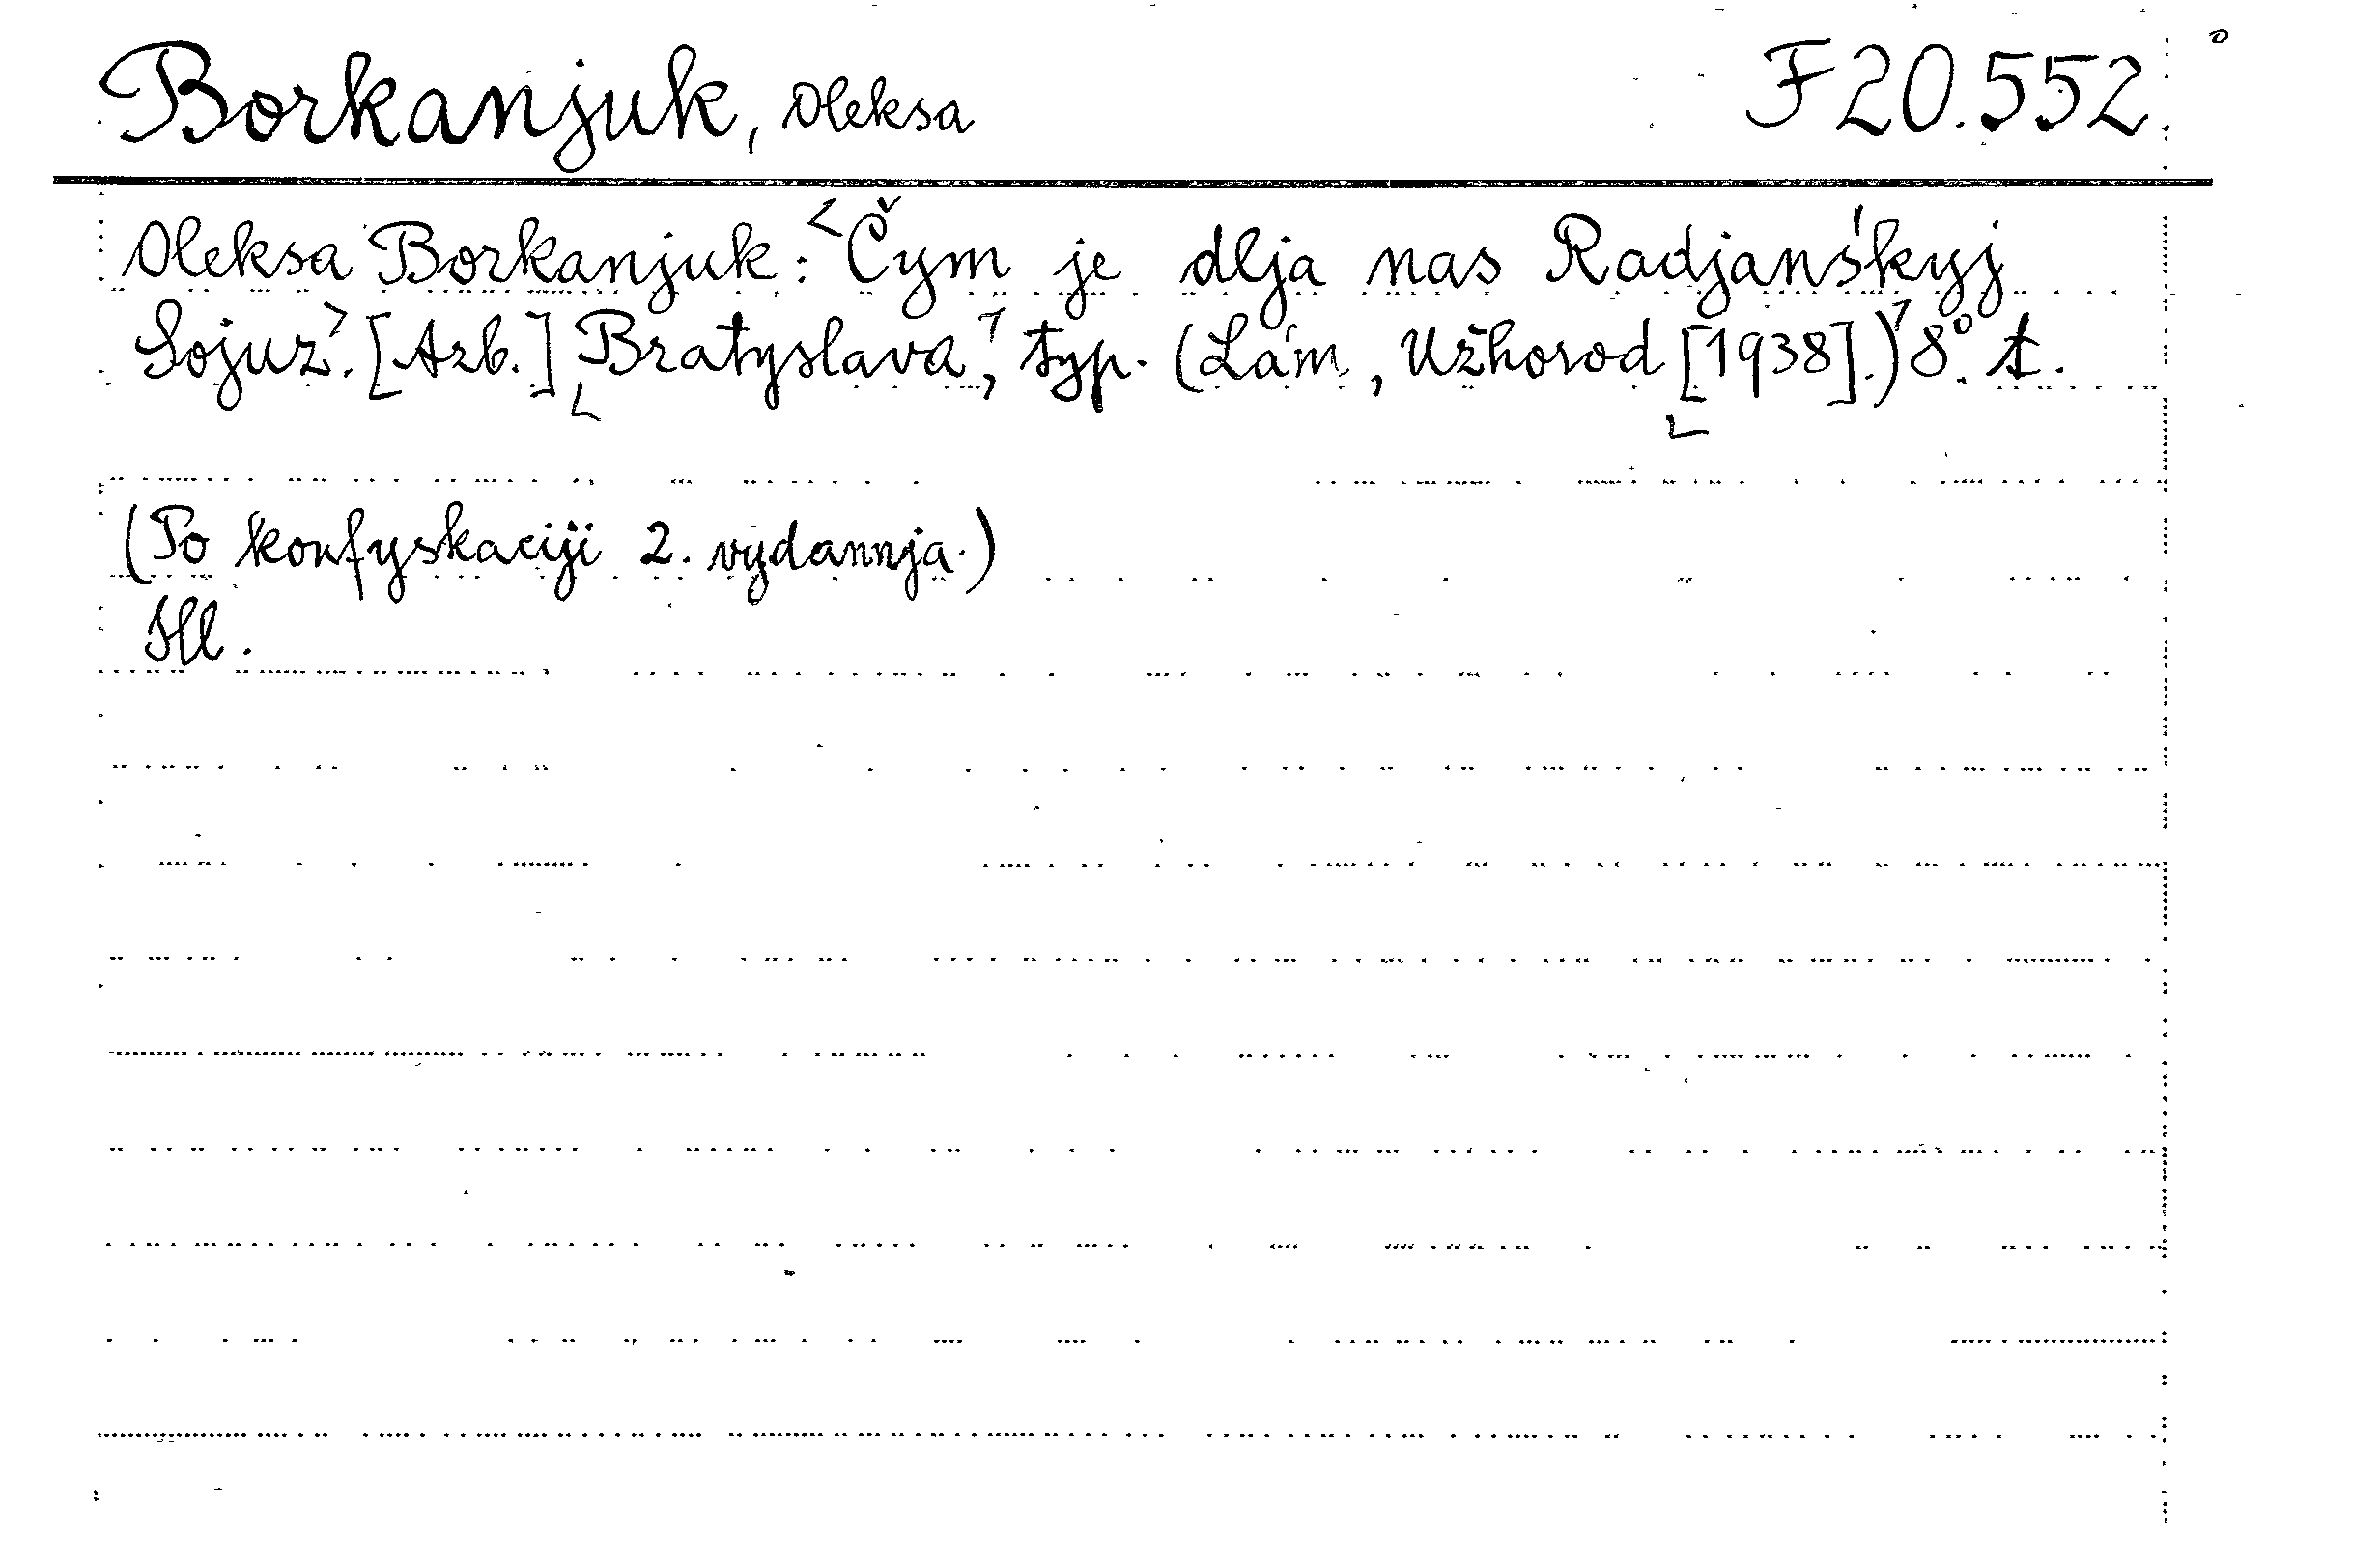 Borkanjuk, Oleksa F 20.552
Oleksa Borkanjuk: <Čym je dlja nas Radjanśkyj
Sojuz>. [Azb.] Bratyslava, typ. (Lám, Užhorod [1938].) 8°. t.
(Po konfyskaciji 2. vydannja.)